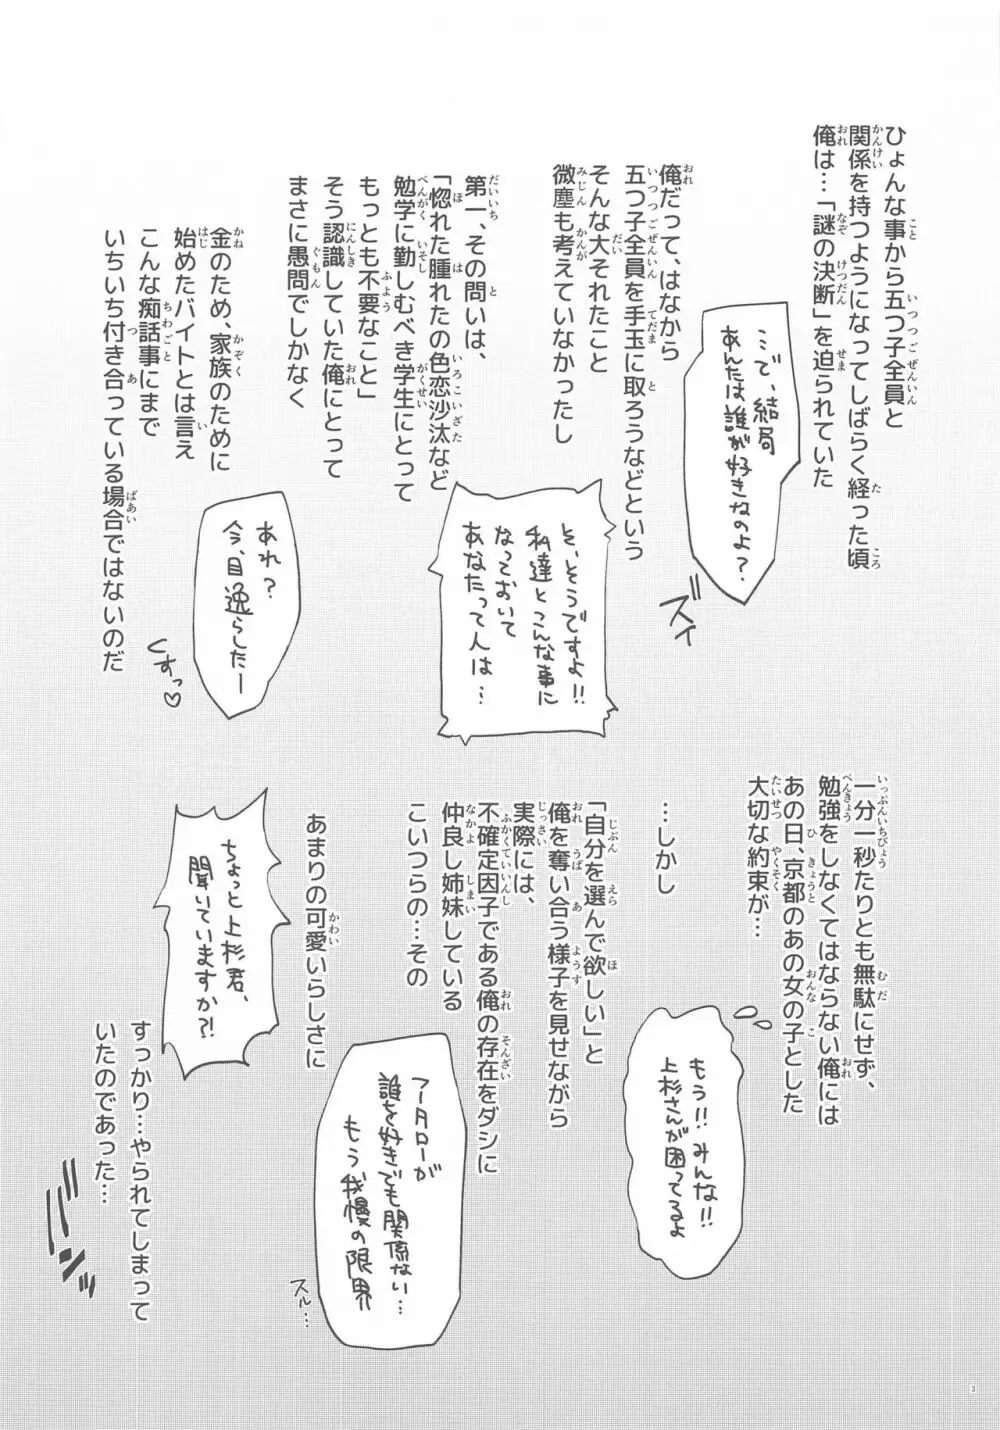 ひょんな事から五つ子全員と
関係を持つようになってしばらく経った頃
俺は…「謎の決断」を迫られていた
…で、結局
あんたは誰が好きなのよ？
ズイ
俺だって、はなから
五つ子全員を手玉に取ろうなどという
そんな大それたこと
微塵も考えていなかったし
そ、そうですよ!!
私達とこんな事に
なっておいて
あなたって人は…
第一、その問いは、
「惚れた腫れたの色恋沙汰など
勉学に勤しむべき学生にとって
もっとも不要なこと」
そう認識していた俺にとって
まさに愚問でしかなく
あれ？
今、目逸らしたー
くすっ♡
金のため、家族のために
始めたバイトとは言え
こんな痴話事にまで
いちいち付き合っている場合ではないのだ
一分一秒たりとも無駄にせず、
勉強をしなくてはならない俺には
あの日、京都のあの女の子とした
大切な約束が…
もう!!みんな!!
上杉さんが困ってるよ
…しかし
「自分を選んで欲しい」と
俺を奪い合う様子を見せながら
実際には、
不確定因子である俺の存在をダシに
仲良し姉妹している
こいつらの…その
フータローが
誰を好きでも関係ない…
もう我慢の限界
スル…
あまりの可愛いらしさに
ちょっと上杉君、
聞いていますか?!
すっかり…やられてしまって
いたのであった…
ギンッ
3